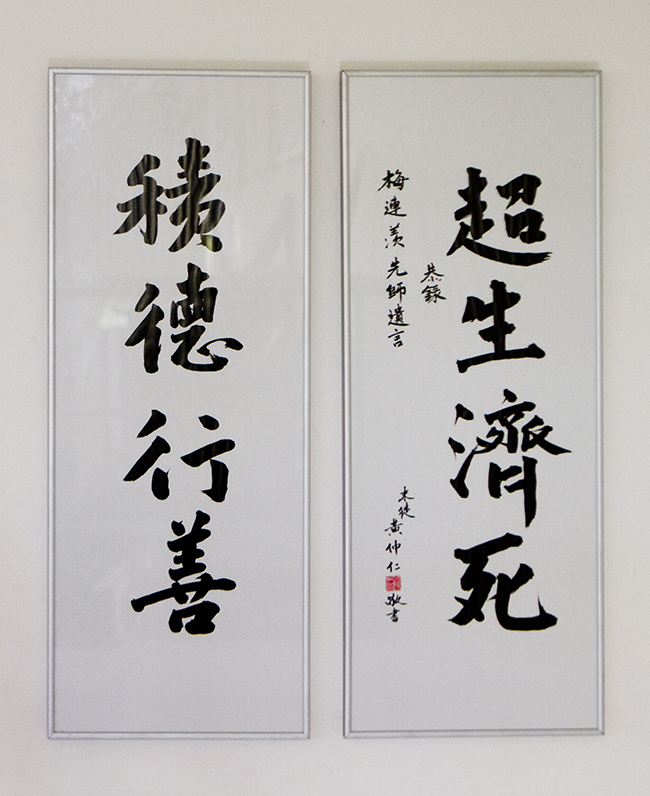 超生濟死
恭錄
梅連羡先師遺言
末徒黃仲仁敬書
積德行善